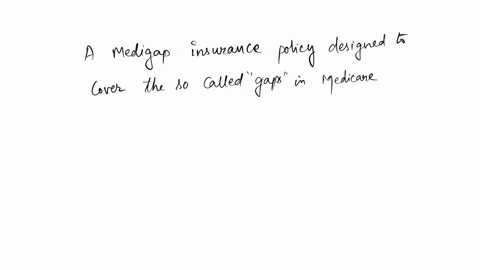 A Medigap insurance policy designed to
Cover the so called "gaps" in Medicare